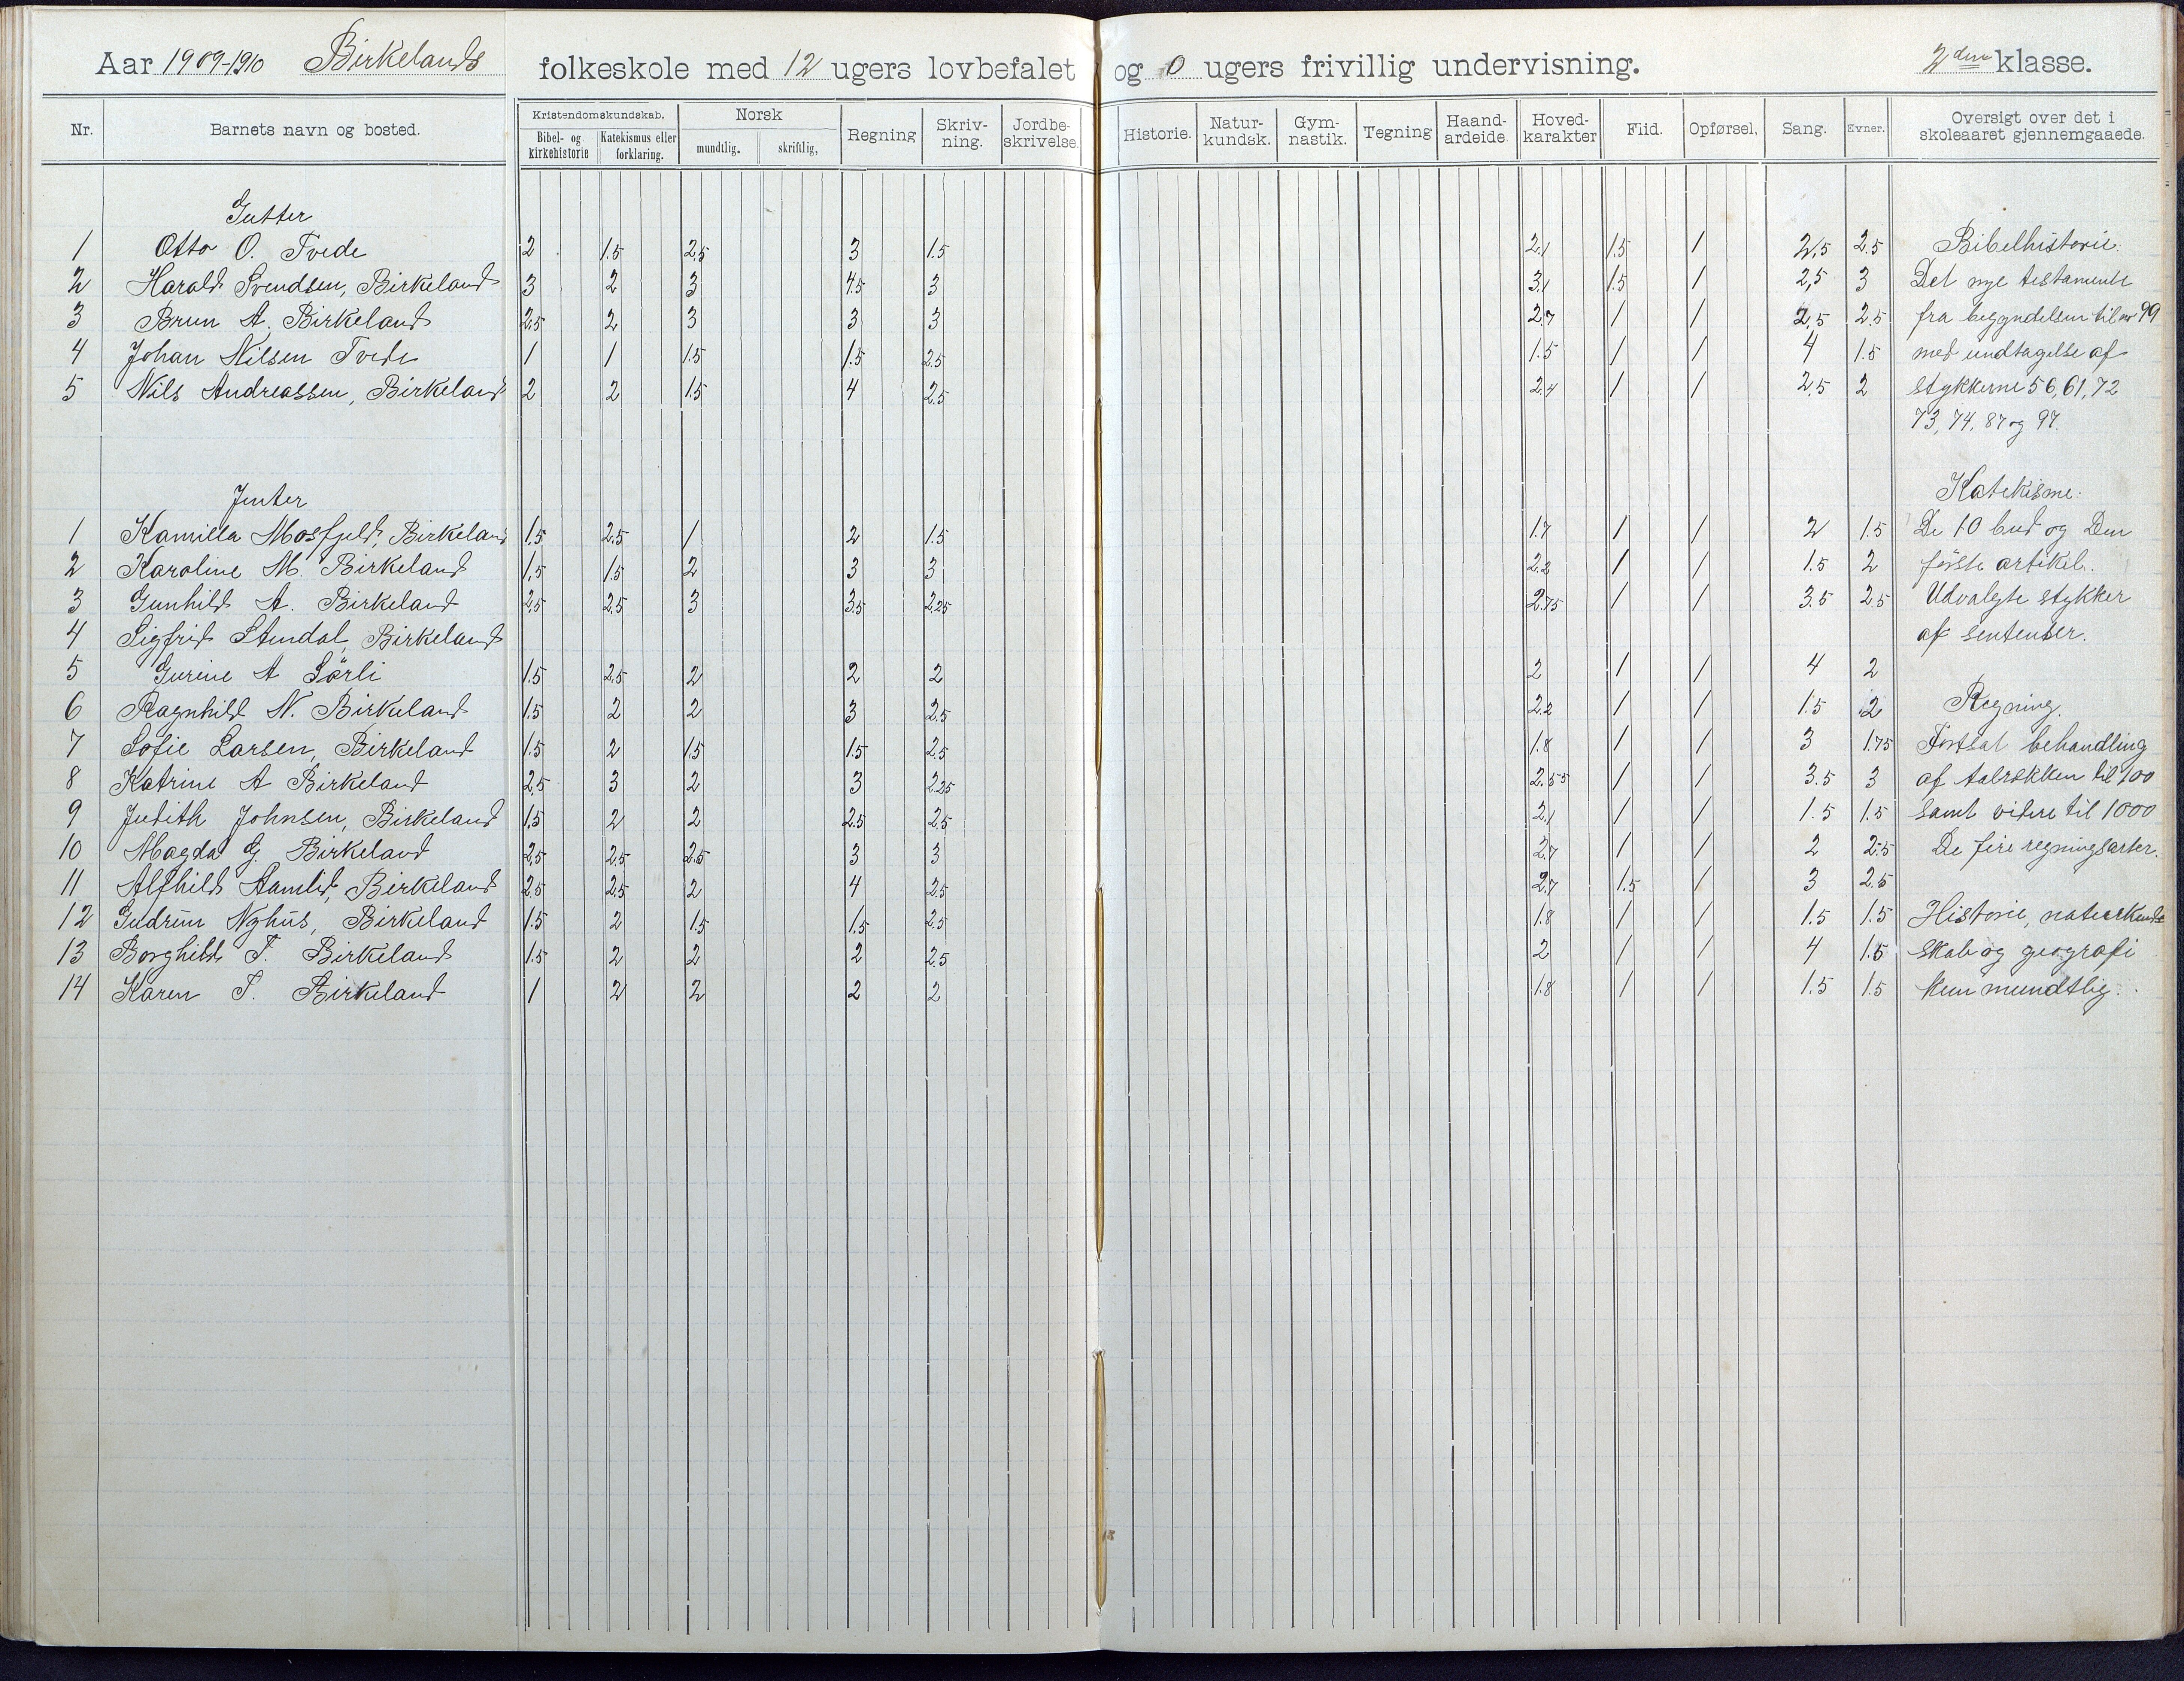 Aar 1909-1910 Birkelands folkeskole med 12 ugers lovbefalet og 0 ugers frivillig undervisning. 2den klasse.
Nr. Barnets navn og bosted. Kristendomskundskab. Bibel- og kirkehistorie Katekismus eller forklaring. Norsk mundtlig. skriftlig, Regning Skriv-ning. Jordbe-skrivelse. Historie. Natur-kundsk. Gym-nastik. Tegning Haand-arbeide Hoved-karakter Flid. Opførsel. Sang. Evner. Oversigt over det i skoleaaret gjennemgaaede.
Gutter
1 Otto O. Tvede 2 1.5 2.5 3 1.5 2.1 1.5 1 2,5 2.5 Bibelhistorie.
2 Harald Svendsen, Birkeland 3 2 3 4.5 3 3.1 1.5 1 2,5 3 Det nye testamente
3 Brun A. Birkeland 2.5 2 3 3 3 2.7 1 1 2,5 2.5 fra begyndelsen til nr 99
4 Johan Nilsen Tvede 1 1 1.5 1.5 2.5 1.5 1 1 4 1.5 med undtagelse af
5 Nils Andreassen, Birkeland 2 2 1.5 4 2.5 2.4 1 1 2,5 2 stykkerne 56, 61, 72
73, 74, 87 og 97.
Jenter Katekisme.
1 Kamilla Mosfjeld, Birkeland 1.5 2.5 1 2 1.5 1.7 1 1 2 1.5 De 10 bud og Den
2 Karoline M. Birkeland 1.5 1.5 2 3 3 2.2 1 1 1.5 2 første artikel.
3 Gunhild A. Birkeland 2.5 2.5 3 3.5 2.25 2.75 1 1 3.5 2.5 Udvalgte stykker
4 Sigfrid Stendal, Birkeland af sentenser.
5 Gurine A Sørli 1.5 2.5 2 2 2 2 1 1 4 2
6 Ragnhild N. Birkeland 1.5 2 2 3 2.5 2.2 1 1 1.5 2 Regning.
7 Sofie Larsen, Birkeland 1.5 2 1.5 1.5 2.5 1.8 1 1 3 1.75 Fortsat behandling
8 Katrine A Birkeland 2.5 3 2 3 2.25 2.55 1 1 3.5 3 af talrækken til 100
9 Judith Johnsen, Birkeland 1.5 2 2 2.5 2.5 2.1 1 1 1.5 1.5 samt videre til 1000
10 Magda G. Birkeland 2.5 2.5 2.5 3 3 2.7 1 1 2 2.5 De fire regningsarter.
11 Alfhild Aamlid, Birkeland 2.5 2.5 2 4 2.5 2.7 1.5 1 3 2.5
12 Gudrun Nyhus, Birkeland 1.5 2 1.5 1.5 2.5 1.8 1 1 1.5 1.5 Historie, naturkund-
13 Borghild T. Birkeland 1.5 2 2 2 2.5 2 1 1 4 1.5 skab og geografi
14 Karen T. Birkeland 1 2 2 2 2 1.8 1 1 1.5 1.5 kun mundtlig.